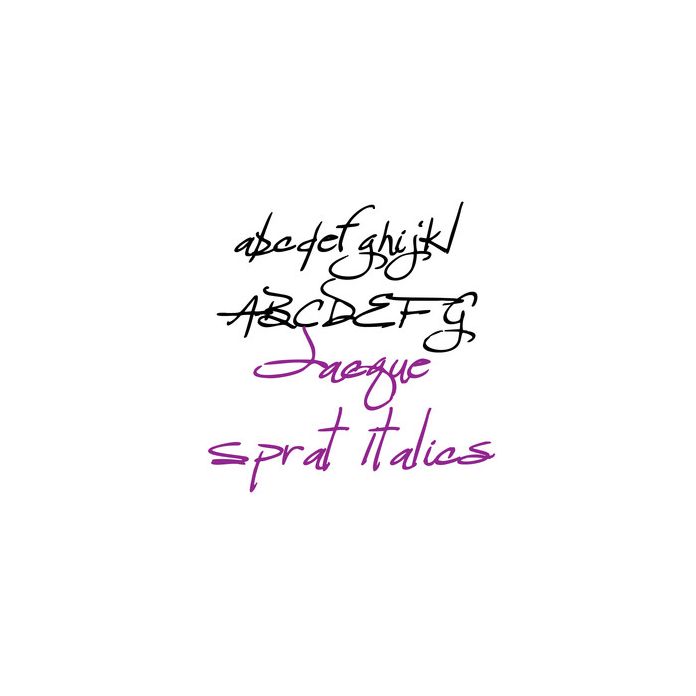 abcdefghijkl
ABCDEFG
Jacque
Sprat Italics